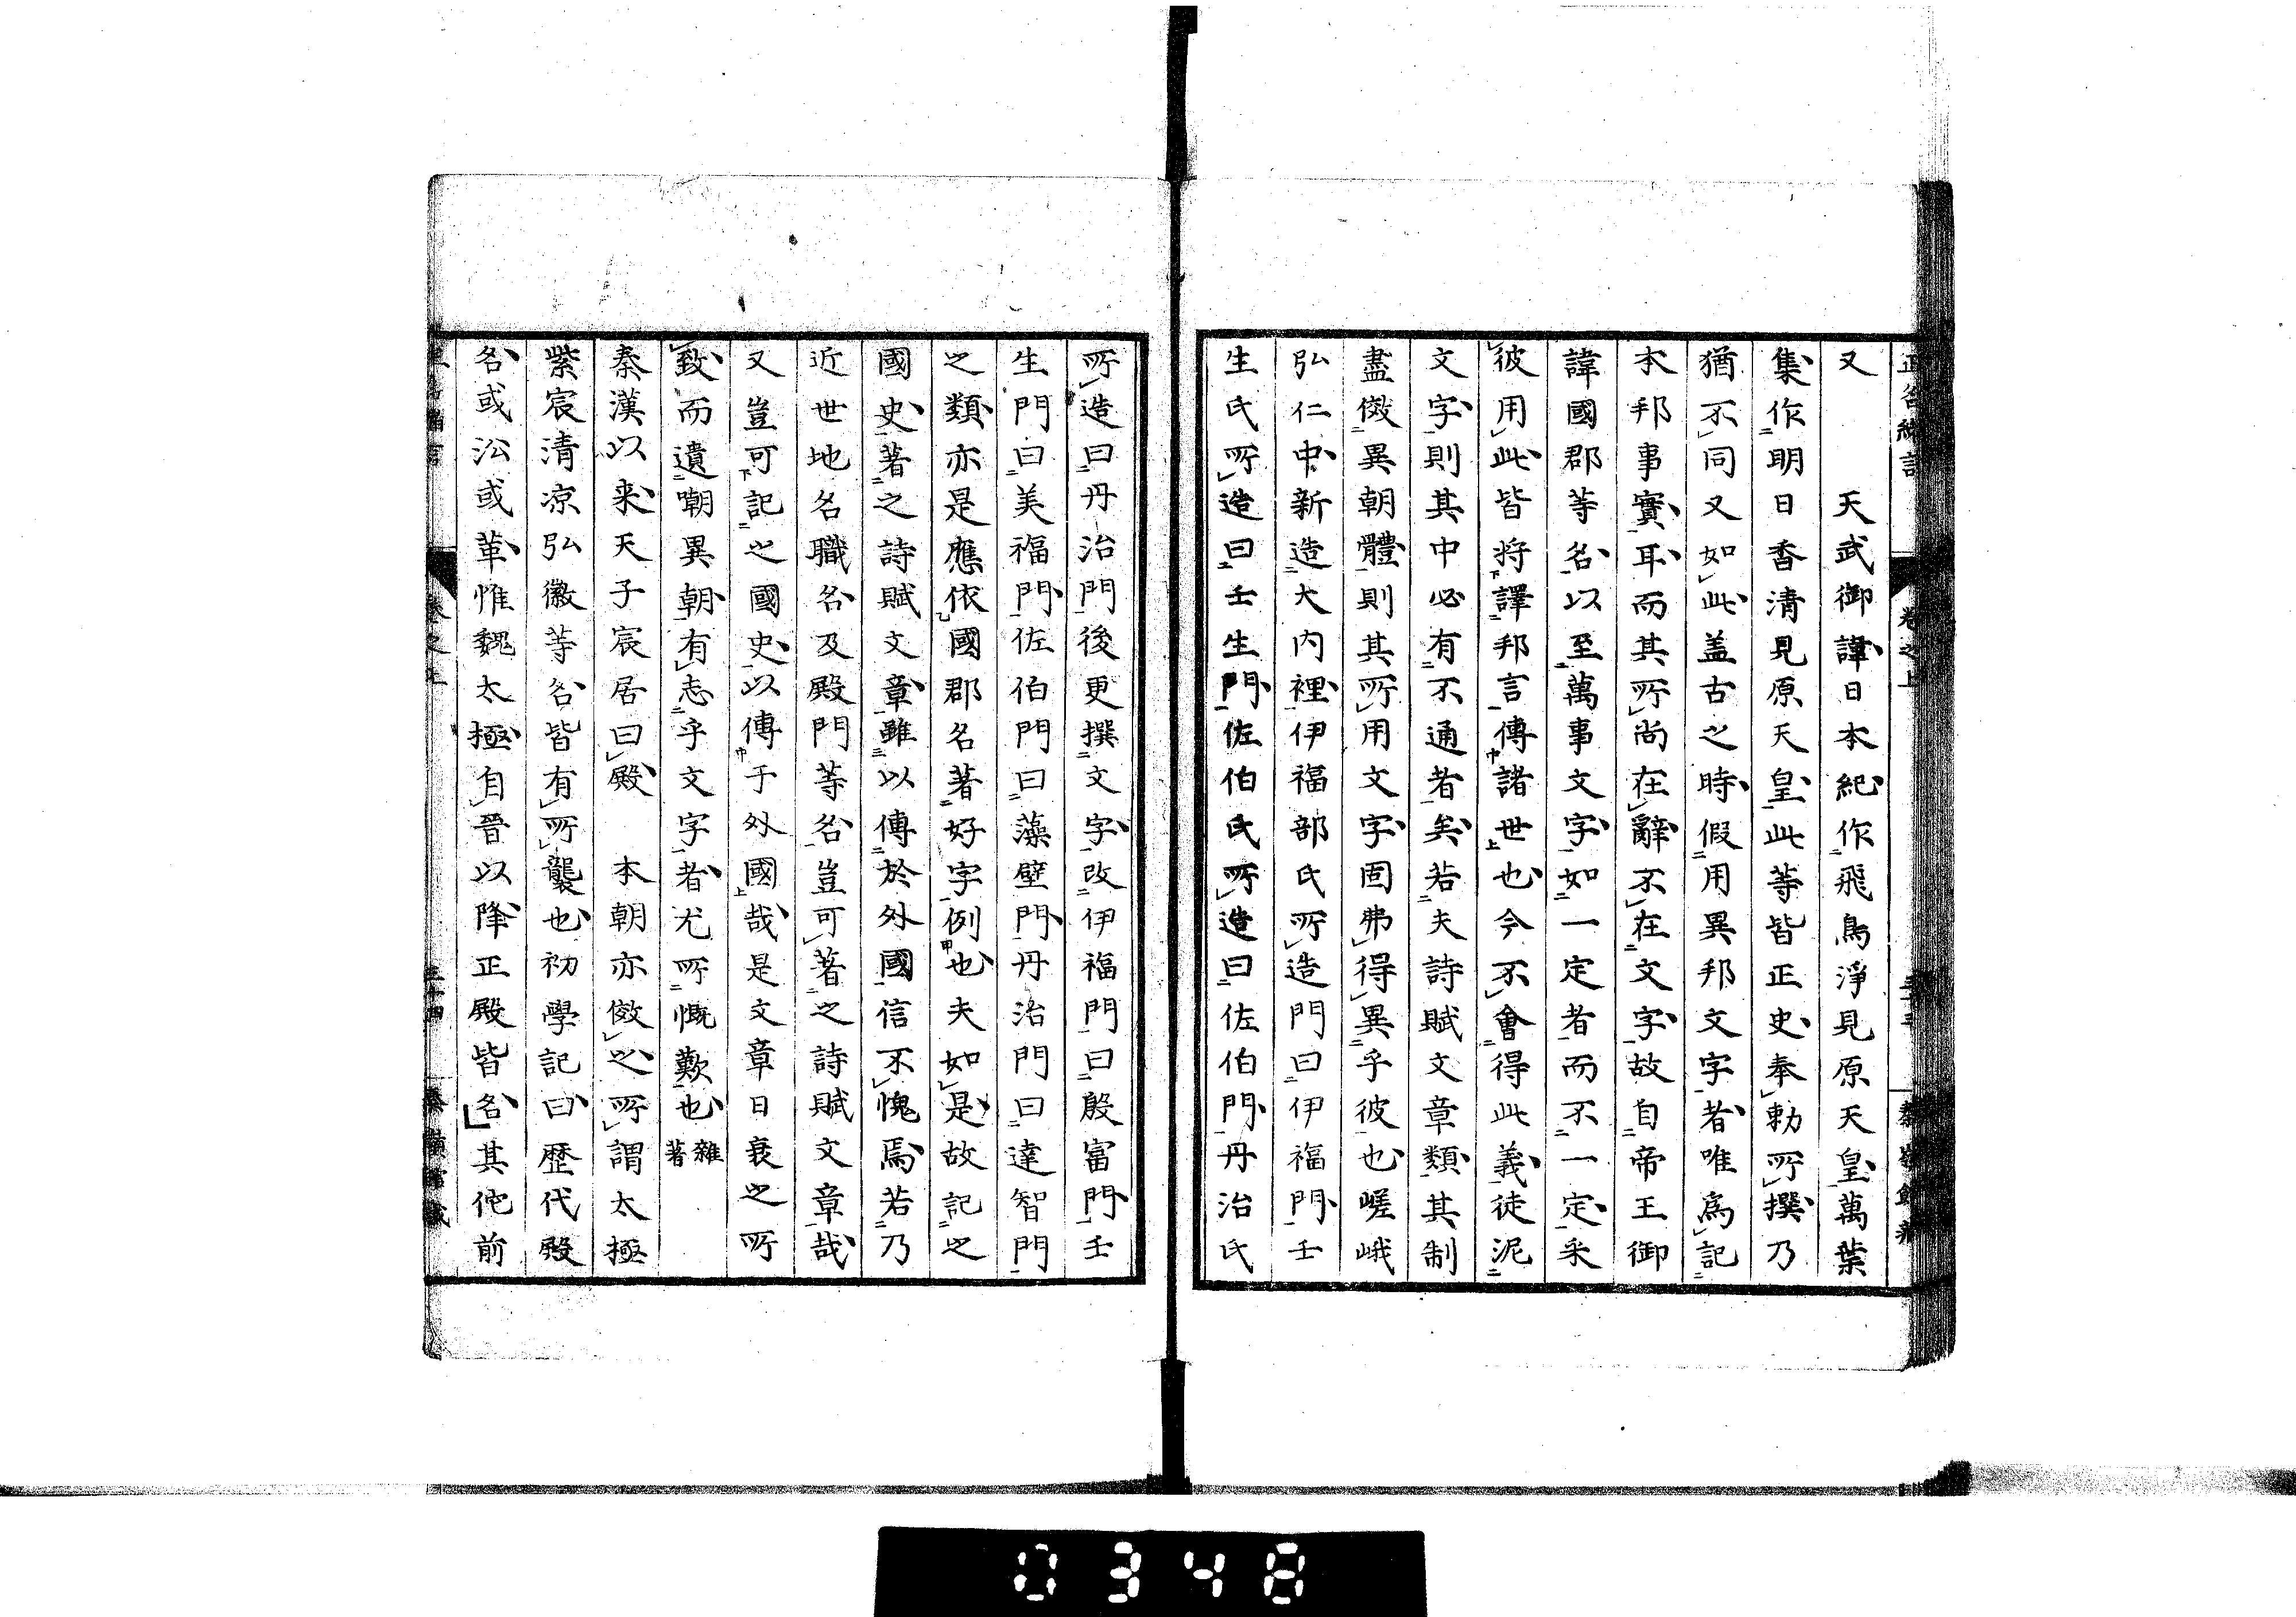 又　　天武御諱日本紀作飛鳥淨見原天皇萬葉
集作明日香清見原天皇此等皆正史奉勅所撰乃
猶不同又如此盖古之時假用異邦文字者唯爲記
本邦事實耳而其所尚在辭不在文字故自帝王御
諱國郡等名以至萬事文字如一定者而不一定采
彼用此皆將譯邦言傳諸世也今不會得此義徒泥
文字則其中必有不通者矣若夫詩賦文章類其制
盡傚異朝體則其所用文字固弗得異乎彼也嵯峨
弘仁中新造大内裡伊福部氏所造門曰伊福門壬
生氏所造曰壬生門佐伯氏所造曰佐伯門丹治氏
所造曰丹治門後更撰文字改伊福門曰殷富門壬
生門曰美福門佐伯門曰藻壁門丹治門曰達智門
之類亦是應依國郡名著好字例也夫如是故記之
國史著之詩賦文章雖以傳於外國信不愧焉若乃
近世地名職名及殿門等名豈可著之詩賦文章哉
又豈可記之國史以傳于外國哉是文章日衰之所
致而遺嘲異朝有志乎文字者尤所慨歎也雜著
秦漢以来天子宸居曰殿　本朝亦傚之所謂太極
紫宸清凉弘徽等名皆有所襲也初學記曰歴代殿
名或沿或革惟魏太極自晉以降正殿皆名其他前
卷之上
0348